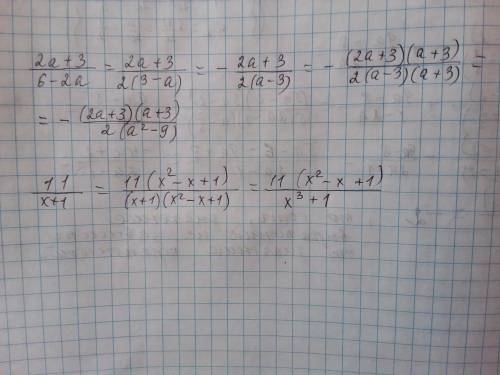 (2a+3)/(6-2a) = (2a+3)/(2(3-a)) = - (2a+3)/(2(a-3)) = - ((2a+3)(a+3))/(2(a-3)(a+3)) =
= - ((2a+3)(a+3))/(2(a²-9))
11/(x+1) = (11(x²-x+1))/((x+1)(x²-x+1)) = (11(x²-x+1))/(x³+1)